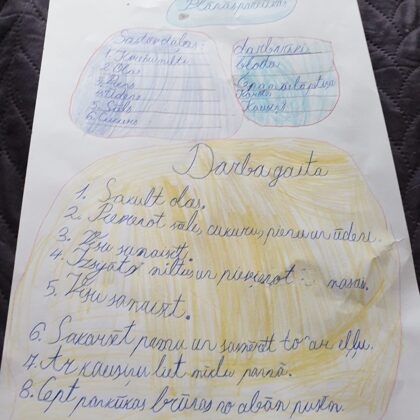 Plānās pankūkas
Sastāvdaļas:
1. Kviešu milti
2. Olas
3. Piens
4. Ūdens
5. Sāls
6. Cukurs
darbarīki
bļoda
Karote
Kausiņš
Darba gaita
1. Sakult olas.
2. Pievienot sāli, cukuru, pienu un ūdeni.
3. Visu samaisīt.
4. Izsijāt miltus un pievienot masai.
5. Visu samaisīt.
6. Sakarsēt pannu un iesmērēt to ar eļļu.
7. Ar kausiņu liet mīklu pannā.
8. Cept pankūkas brūnas no abām pusēm.